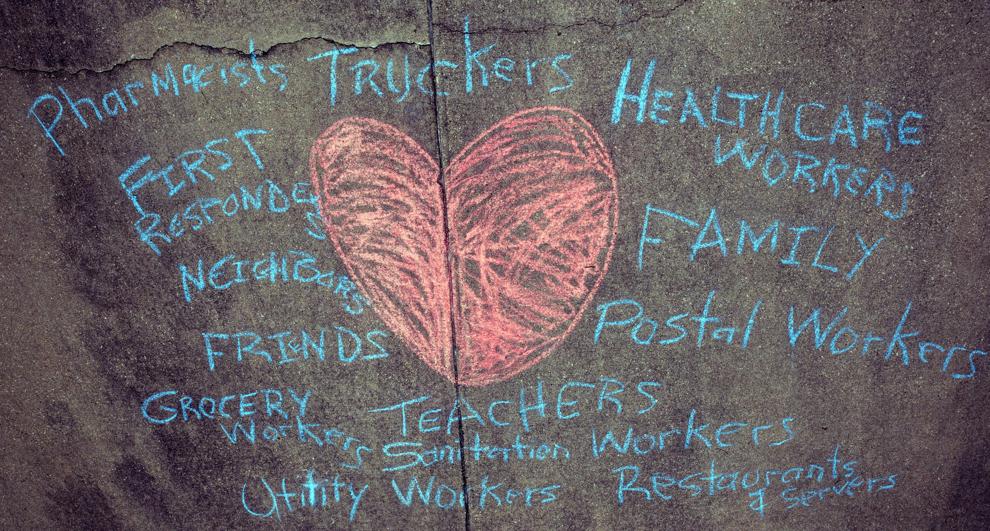 Pharmacists TRUCkers
HEALTHCARE
WORKERS
FIRST
RESPONDERS
FAMILY
NEIGHBORS
Postal Workers
FRIENDS
GROCERY
Workers
TEACHERS
Sanitation Workers
Utility Workers
Restaurants
& Servers